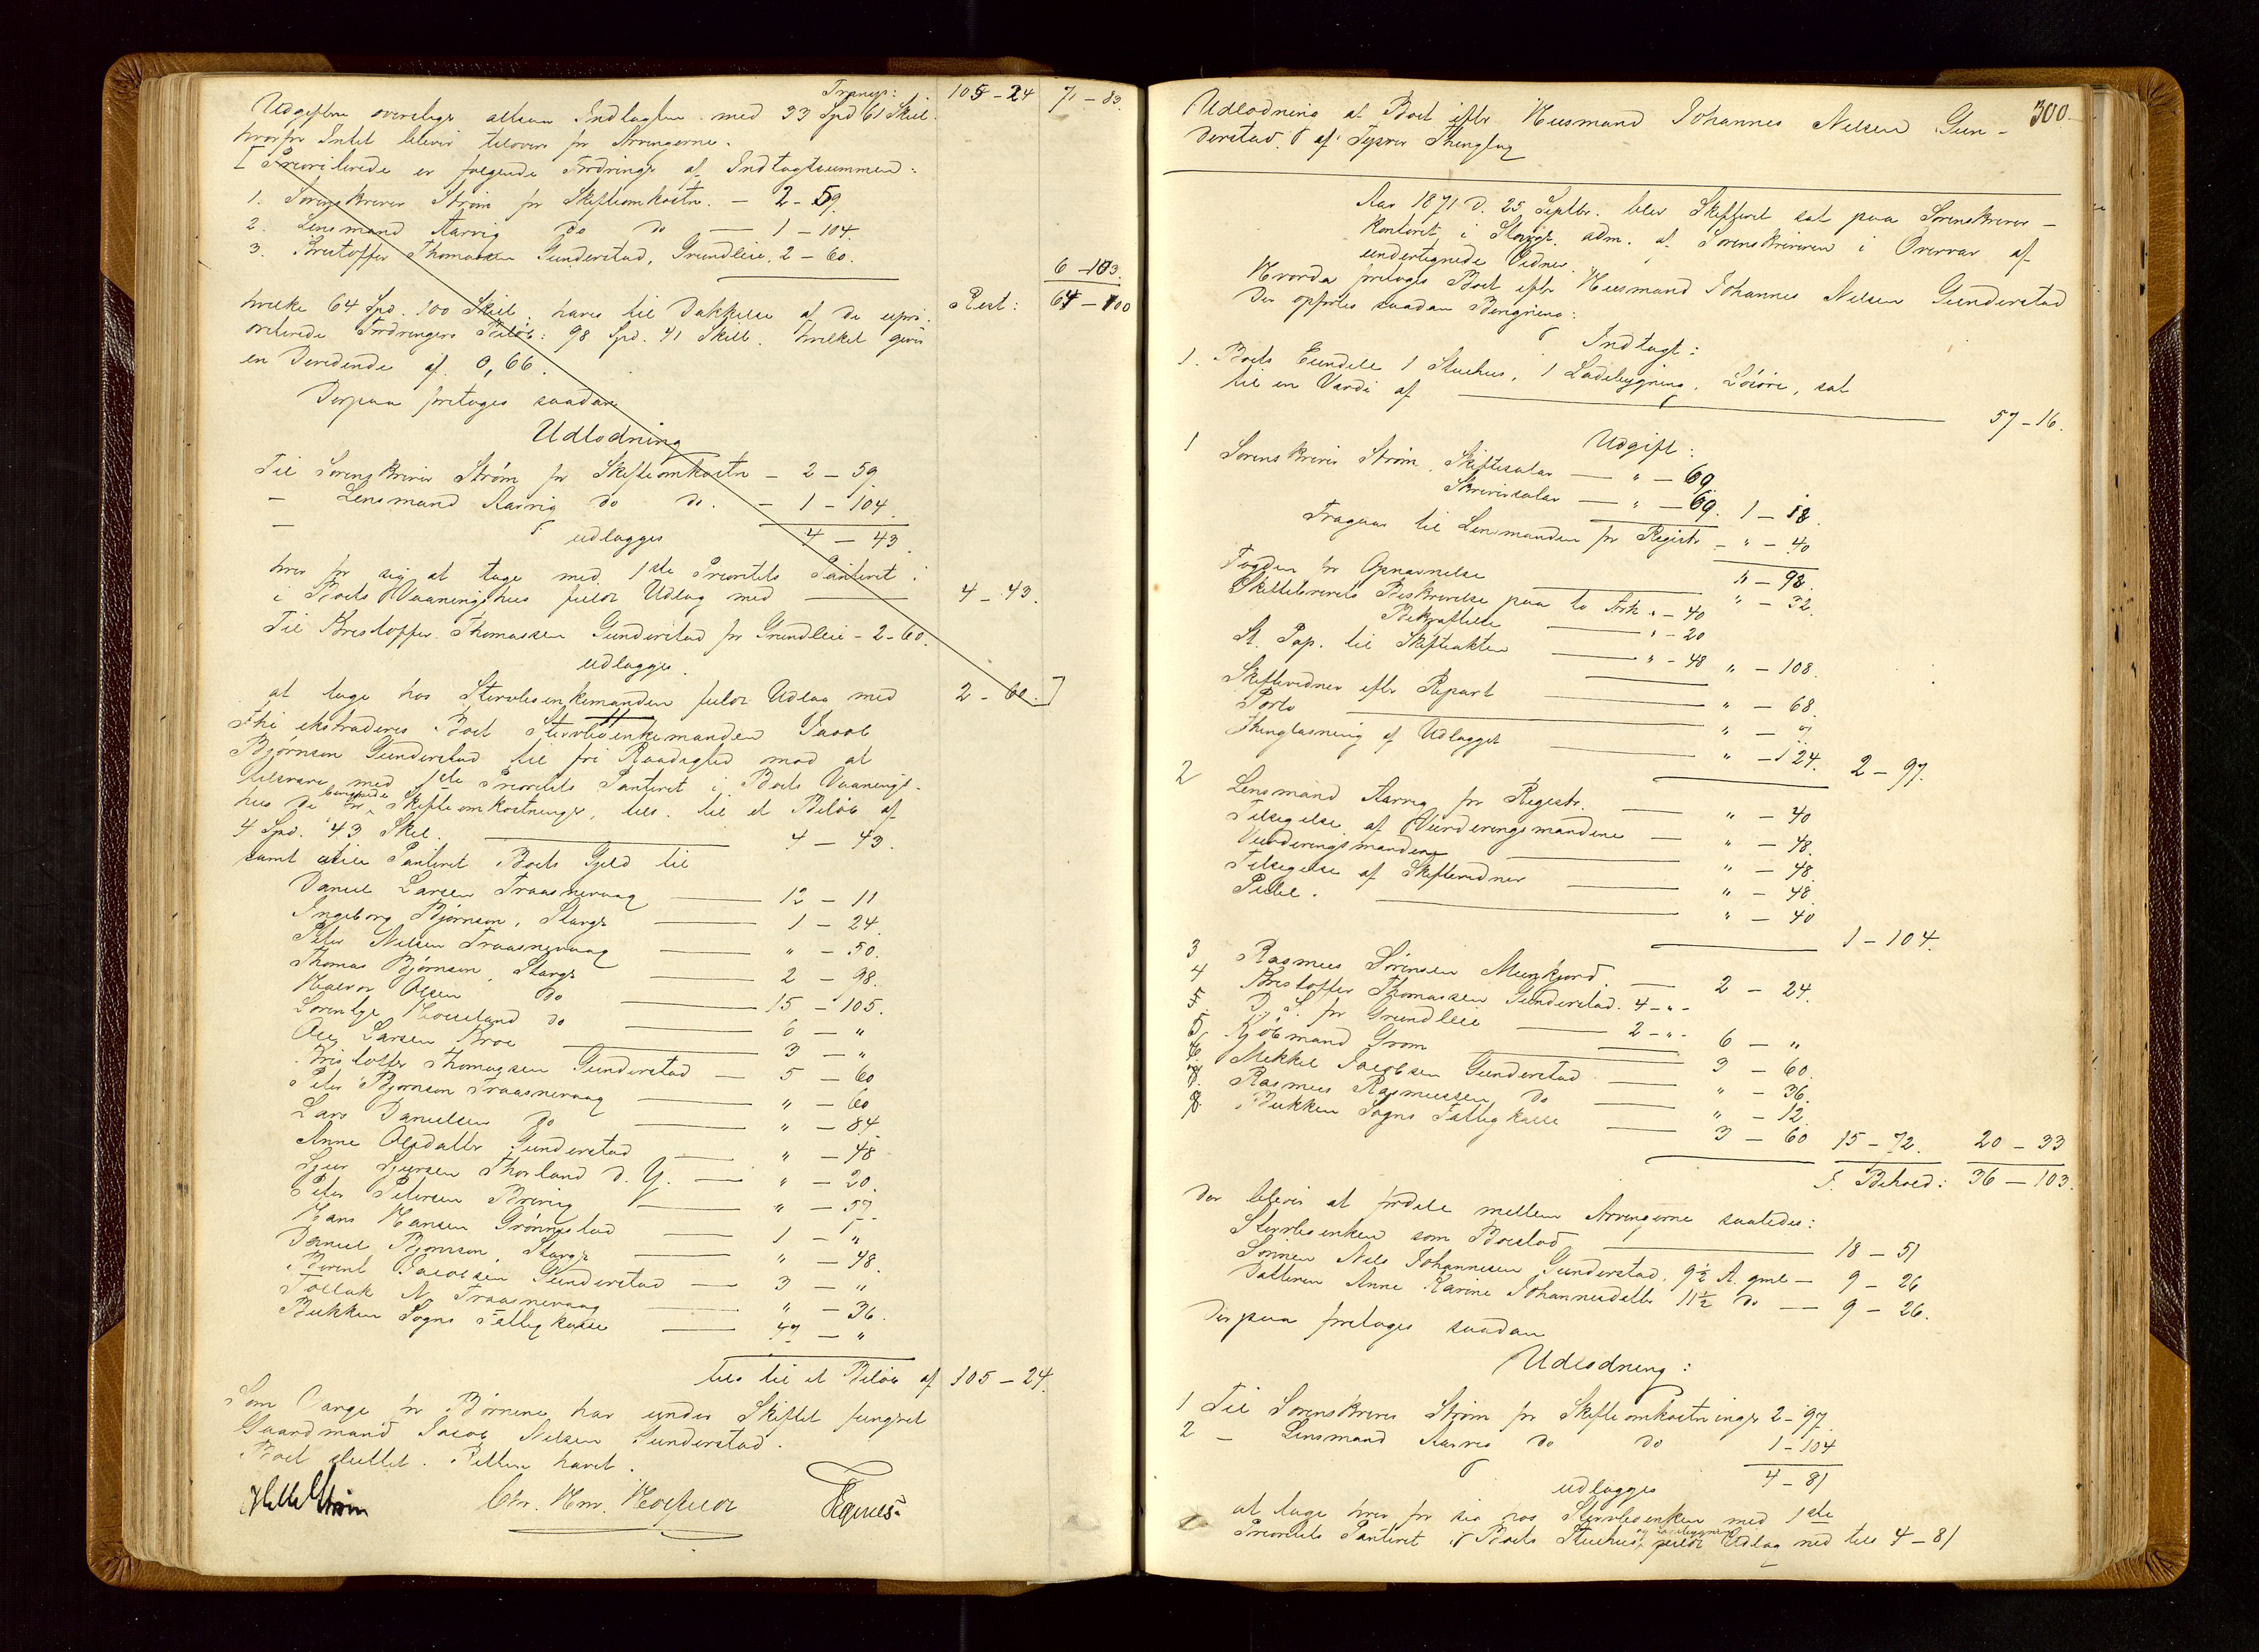 Transp: 105 - 24 71 - 83.
Udgifterne overstige altsaa Indtægten med 33 Spd 61 Skil.
hvorfor Intet bliver tilovers for Arvingerne.
[Prioriterede er følgende Fordringer af Indtægtssummen:
1. Sorenskriver Strøm for Skifteomkostn. - 2 - 59.
2. Lensmand Aarvig do do - 1 - 104.
3. Kristoffer Thomassen Gunderstad, Grundleie, 2 - 60.
6 - 103.
Rest: 64 - 100
hvilke 64 Spd. 100 Skill. haves til Dækkelse af de upri-
oriterede Fordringers Beløb: 98 Spd. 41 Skill. hvilket giver
en Dividende af 0,66.
Derpaa foretages saadan
Udlodning
Til Sorenskriver Strøm for Skifteomkostn - 2 - 59
- Lensmand Aarvig do do. - 1 - 104.
- udlægges 4 - 43.
hver for sig at tage med 1ste Prioritets Panteret i
i Boets Vaaningshus fuldt Udlæg med 4 - 43.
Til Kristoffer Thomassen Gunderstad for Grundleie - 2 - 60.
udlægges
at tage hos Stervboenkemanden fuldt Udlæg med 2 - 60.]
Thi ekstraderes Boet Stervboenkemanden Jacob
Bjørnsen Gunderstad til fri Raadighed mod at
tilsvare med 1ste Prioritets Panteret i Boets Vaanings-
hus de berørede Skifteomkostninger, tils. til et Beløb af
4 Spd. 43 Skil. 4 - 43.
samt uden Panteret Boets Gjeld til
Daniel Larsen Traasnevaag 12 - 11
Ingeborg Bjørnsen, Stange 1 - 24.
Peter Nilsen Traasnevaag " - 50.
Thomas Bjørnsen, Stange 2 - 98.
Halvor Olsen do 15 - 105.
Lorentze Houeland do 6 - "
Ole Larsen Broe 3 - "
Kristoffer Thomassen Gunderstad 5 - 60
Peter Bjørnsen Traasnevaag " - 60
Lars Danielsen do " - 84
Anne Olsdatter Gunderstad " - 48
Sjur Sjursen Thorland d. Y. " - 20.
Peter Petersen Brevig " - 57
Hans Hansen Grønnestad 1 - "
Daniel Bjørnsen, Stange " - 48.
Berent Jacobsen Gunderstad 3 - "
Tollak N. Traasnevaag " - 36.
Bukken Sogns Fattigkasse 47 - "
tils til et Beløb af 105 - 24.
Som Værge for Børnene har under Skiftet fungeret
Gaardmand Jacob Nilsen Gunderstad.
Boet sluttet. Retten hævet.
Strøm Chr. Hm.
300.
Udlodning at Boet efter Husmand Johannes Nilsen Gun-
derstad af Tysvær Thinglag
Aar 1871 d. 25 Septbr. blev Skifteret sat paa Sorenskriver-
kontoret i adm. af Sorenskriveren i Overvær af
undertegnede Vidner.
Hvorda foretoges Boet efter Husmand Johannes Nilsen Gunderstad
Der opføres saadan Beregning:
Indtægt:
1. Boets Eiendele 1 Stuehus, 1 Ladebygning, Løsøre, sat
til en Værdi af 57 - 16.
Udgift:
1 Sorenskriver Strøm, Skiftesalær " - 69.
Skriversalær " - 69. 1 - 18.
Fragaar til Lensmanden for Registr - " - 40
" - 98.
Fogden for Opnævnelse " - 32.
Skiftebrevets Beskrivelse paa to Ark " - 40
Bekræftelse " - 20
St. Pap. til Skifteakten " - 48 " - 108.
Skiftevidner efter Repart " - 68.
Porto " - 01
Thinglæsning af Udlægget " - 124. 2 - 97.
2 Lensmand Aarvig for Registr. " - 40
Tilsigelse af Vurderingsmændene " - 48.
Vurderingsmændene " - 48.
Tilsigelse af Skiftevidner " - 48.
Pelse. " - 40
1 - 104.
3 Rasmus Sørensen Munkjord. 2 - 24.
4 Kristoffer Thomassen Gunderstad. 4 - " -
D. S. for Grundleie 2 - " - 6 - "
5 Kjøbmand Gram 3 - 60.
6 Mikkel Jacobsen Gunderstad " - 36.
7 Rasmus Rasmussen do " - 12.
8 Bukken Sogns Fattigkasse 3 - 60 15 - 72. 20 - 33
I Behold: 36 - 103.
der bliver at fordele mellem Arvingerne saaledes:
Stervboenken som Boeslod 18 - 51
Sønnen Nils Johannesen Gunderstad, 9½ A. gml - 9 - 26
Datteren Anne Karine Johannesdatter 11½ do - 9 - 26.
Derpaa foretages saadan
Udlodning:
1 Til Sorenskriver Strøm for Skifteomkostninger 2 - 97
2 - Lensmand Aarvig do do 1 - 104
udlægges 4 - 81
at tage hver for sig hos Stervboenken med 1ste
Prioritets Panteret i Boets Stuehus og Ladebygning fuldt Udlæg med tils 4 - 81